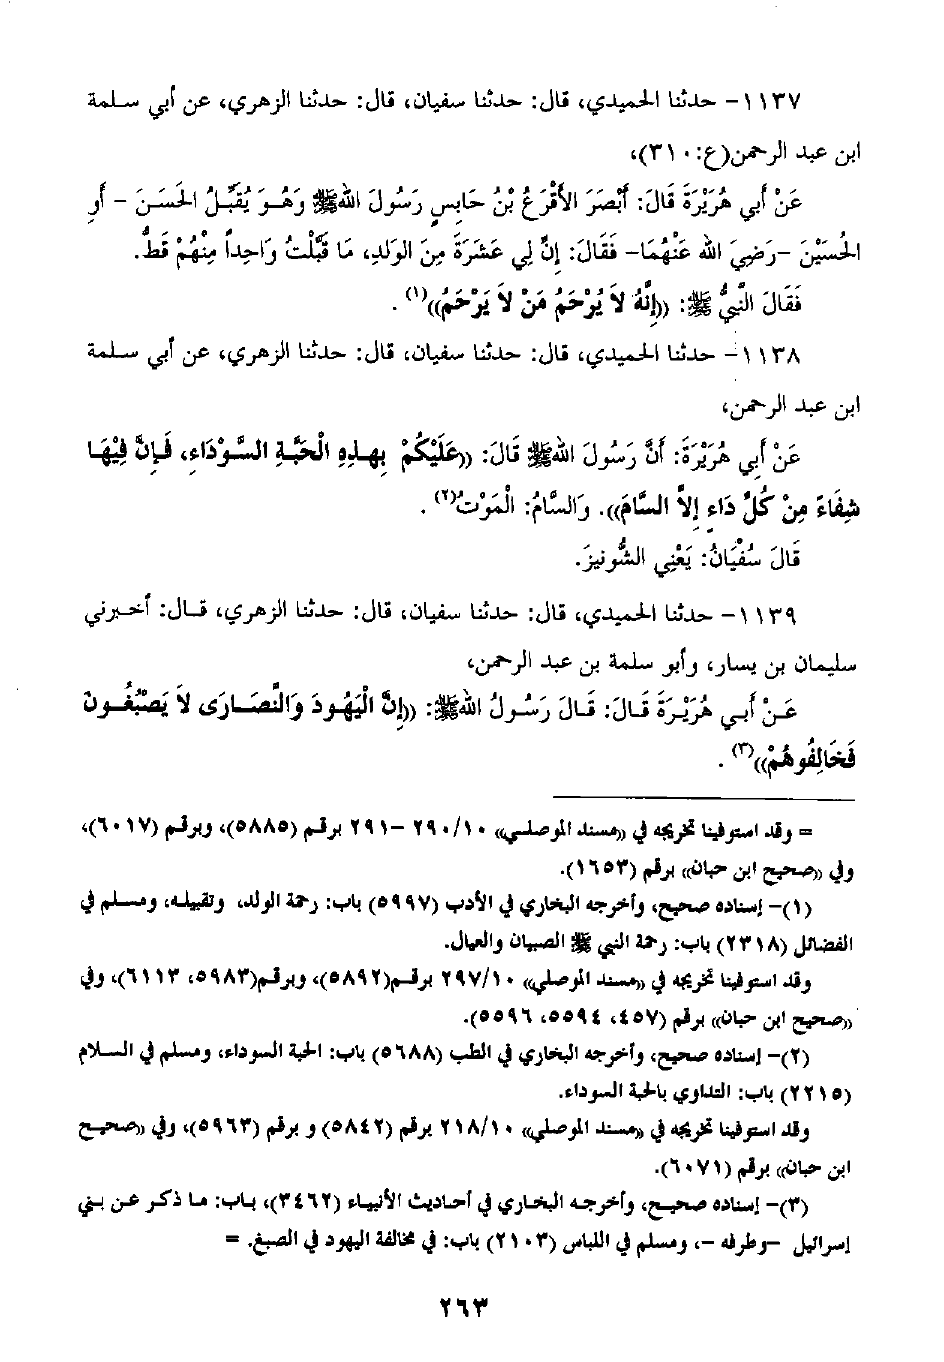 ١١٣٧- حدثنا الحميدي، قال: حدثنا سفيان، قال: حدثنا الزهري، عن أبي سلمة
ابن عبد الرحمن(ع:٣١٠)،
عَنْ أَبِي هُرَيْرَةَ قَالَ: أَبْصَرَ الأَقْرَعُ بْنُ حَابِسٍ رَسُولَ اللهﷺ وَهُوَ يُقَبِّلُ الحَسَنَ - أَوِ
الحُسَيْنَ -رَضِيَ الله عَنْهُمَا- فَقَالَ: إِنَّ لِي عَشَرَةً مِنَ الوَلَدِ، مَا قَبَّلْتُ وَاحِداً مِنْهُمْ قَطُّ.
فَقَالَ النَّبِيُّ ﷺ: ((إِنَّهُ لاَ يُرْحَمُ مَنْ لاَ يَرْحَمُ))(١) .
١١٣٨- حدثنا الحميدي، قال: حدثنا سفيان، قال: حدثنا الزهري، عن أبي سلمة
ابن عبد الرحمن،
عَنْ أَبِي هُرَيْرَةَ: أَنَّ رَسُولَ اللهﷺ قَالَ: ((عَلَيْكُمْ بِهذِهِ الْحَبَّةِ السَّوْدَاءِ، فَإِنَّ فِيْهَا
شِفَاءً مِنْ كُلِّ دَاءٍ إِلاَّ السَّامَ)). وَالسَّامُ: الْمَوْتُ(٢) .
قَالَ سُفْيَانُ: يَعْنِي الشُّونِيزَ.
١١٣٩- حدثنا الحميدي، قال: حدثنا سفيان، قال: حدثنا الزهري، قال: أخبرني
سليمان بن يسار، وأبو سلمة بن عبد الرحمن،
عَنْ أَبِي هُرَيْرَةَ قَالَ: قَالَ رَسُولُ اللهﷺ: ((إِنَّ الْيَهُودَ وَالنَّصَارَى لاَ يَصْبُغُونَ
فَخَالِفُوهُمْ))(٣) .
= وقد استوفينا تخريجه في ((مسند الموصلي)) ٢٩٠/١٠ -٢٩١ برقم (٥٨٨٥)، وبرقم (٦٠١٧)،
وفي ((صحيح ابن حبان)) برقم (١٦٥٣).
(١)- إسناده صحيح، وأخرجه البخاري في الأدب (٥٩٩٧) باب: رحمة الولد، وتقبيله، ومسلم في
الفضائل (٢٣١٨) باب: رحمة النبي ﷺ الصبيان والعيال.
وقد استوفينا تخريجه في ((مسند الموصلي)) ٢٩٧/١٠ برقم(٥٨٩٢)، وبرقم(٥٩٨٣، ٦١١٣)، وفي
((صحيح ابن حبان)) برقم (٤٥٧، ٥٥٩٤، ٥٥٩٦).
(٢)- إسناده صحيح، وأخرجه البخاري في الطب (٥٦٨٨) باب: الحبة السوداء، ومسلم في السلام
(٢٢١٥) باب: التداوي بالحبة السوداء.
وقد استوفينا تخريجه في ((مسند الموصلي)) ٢١٨/١٠ برقم (٥٨٤٢) و برقم (٥٩٦٣)، وفي ((صحيح
ابن حبان)) برقم (٦٠٧١).
(٣)- إسناده صحيح، وأخرجه البخاري في أحاديث الأنبياء (٣٤٦٢)، باب: ما ذكر عن بني
إسرائيل -وطرفه -، ومسلم في اللباس (٢١٠٣) باب: في مخالفة اليهود في الصبغ. =
٢٦٣